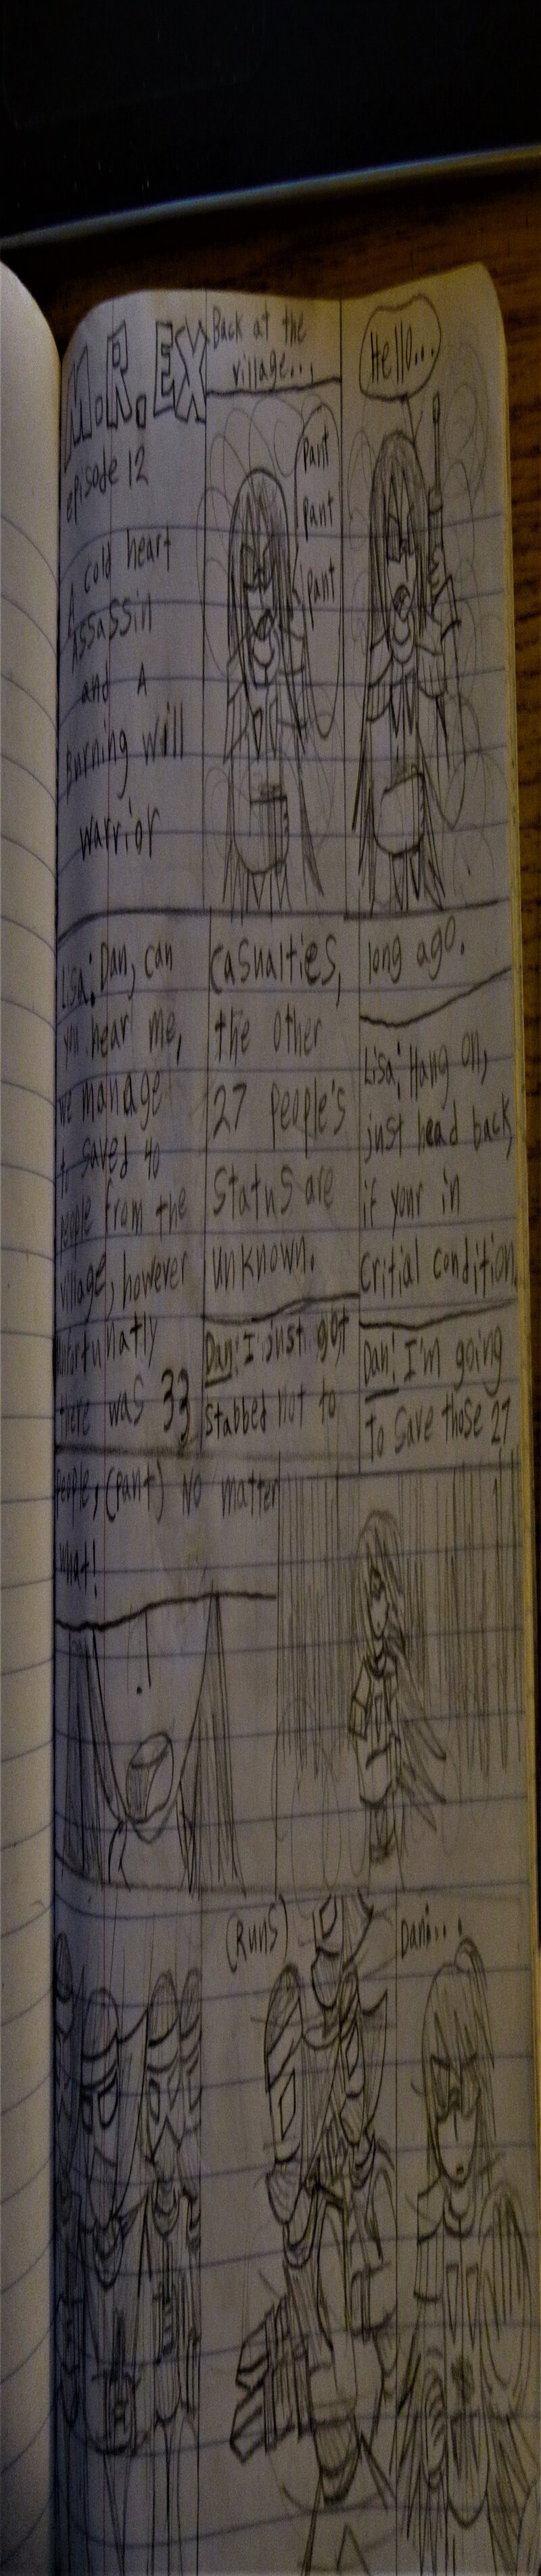 M.R.EX
episode 12
A cold heart
Assassin
and A
Burning will
warrior
Back at the
village...
pant
pant
pant
Hello...
Lisa: Dan, can
you hear me,
we manage
to saved 40
people from the
village, however
unfortunatly
there was 33
casualties,
the other
27 people's
status are
unknown.
Dan: I just got
stabbed not to
long ago.
Lisa: Hang on,
just head back,
if your in
critial condition
Dan: I'm going
to save those 27
people, (pant) no matter
what!
(Runs)
Dan...